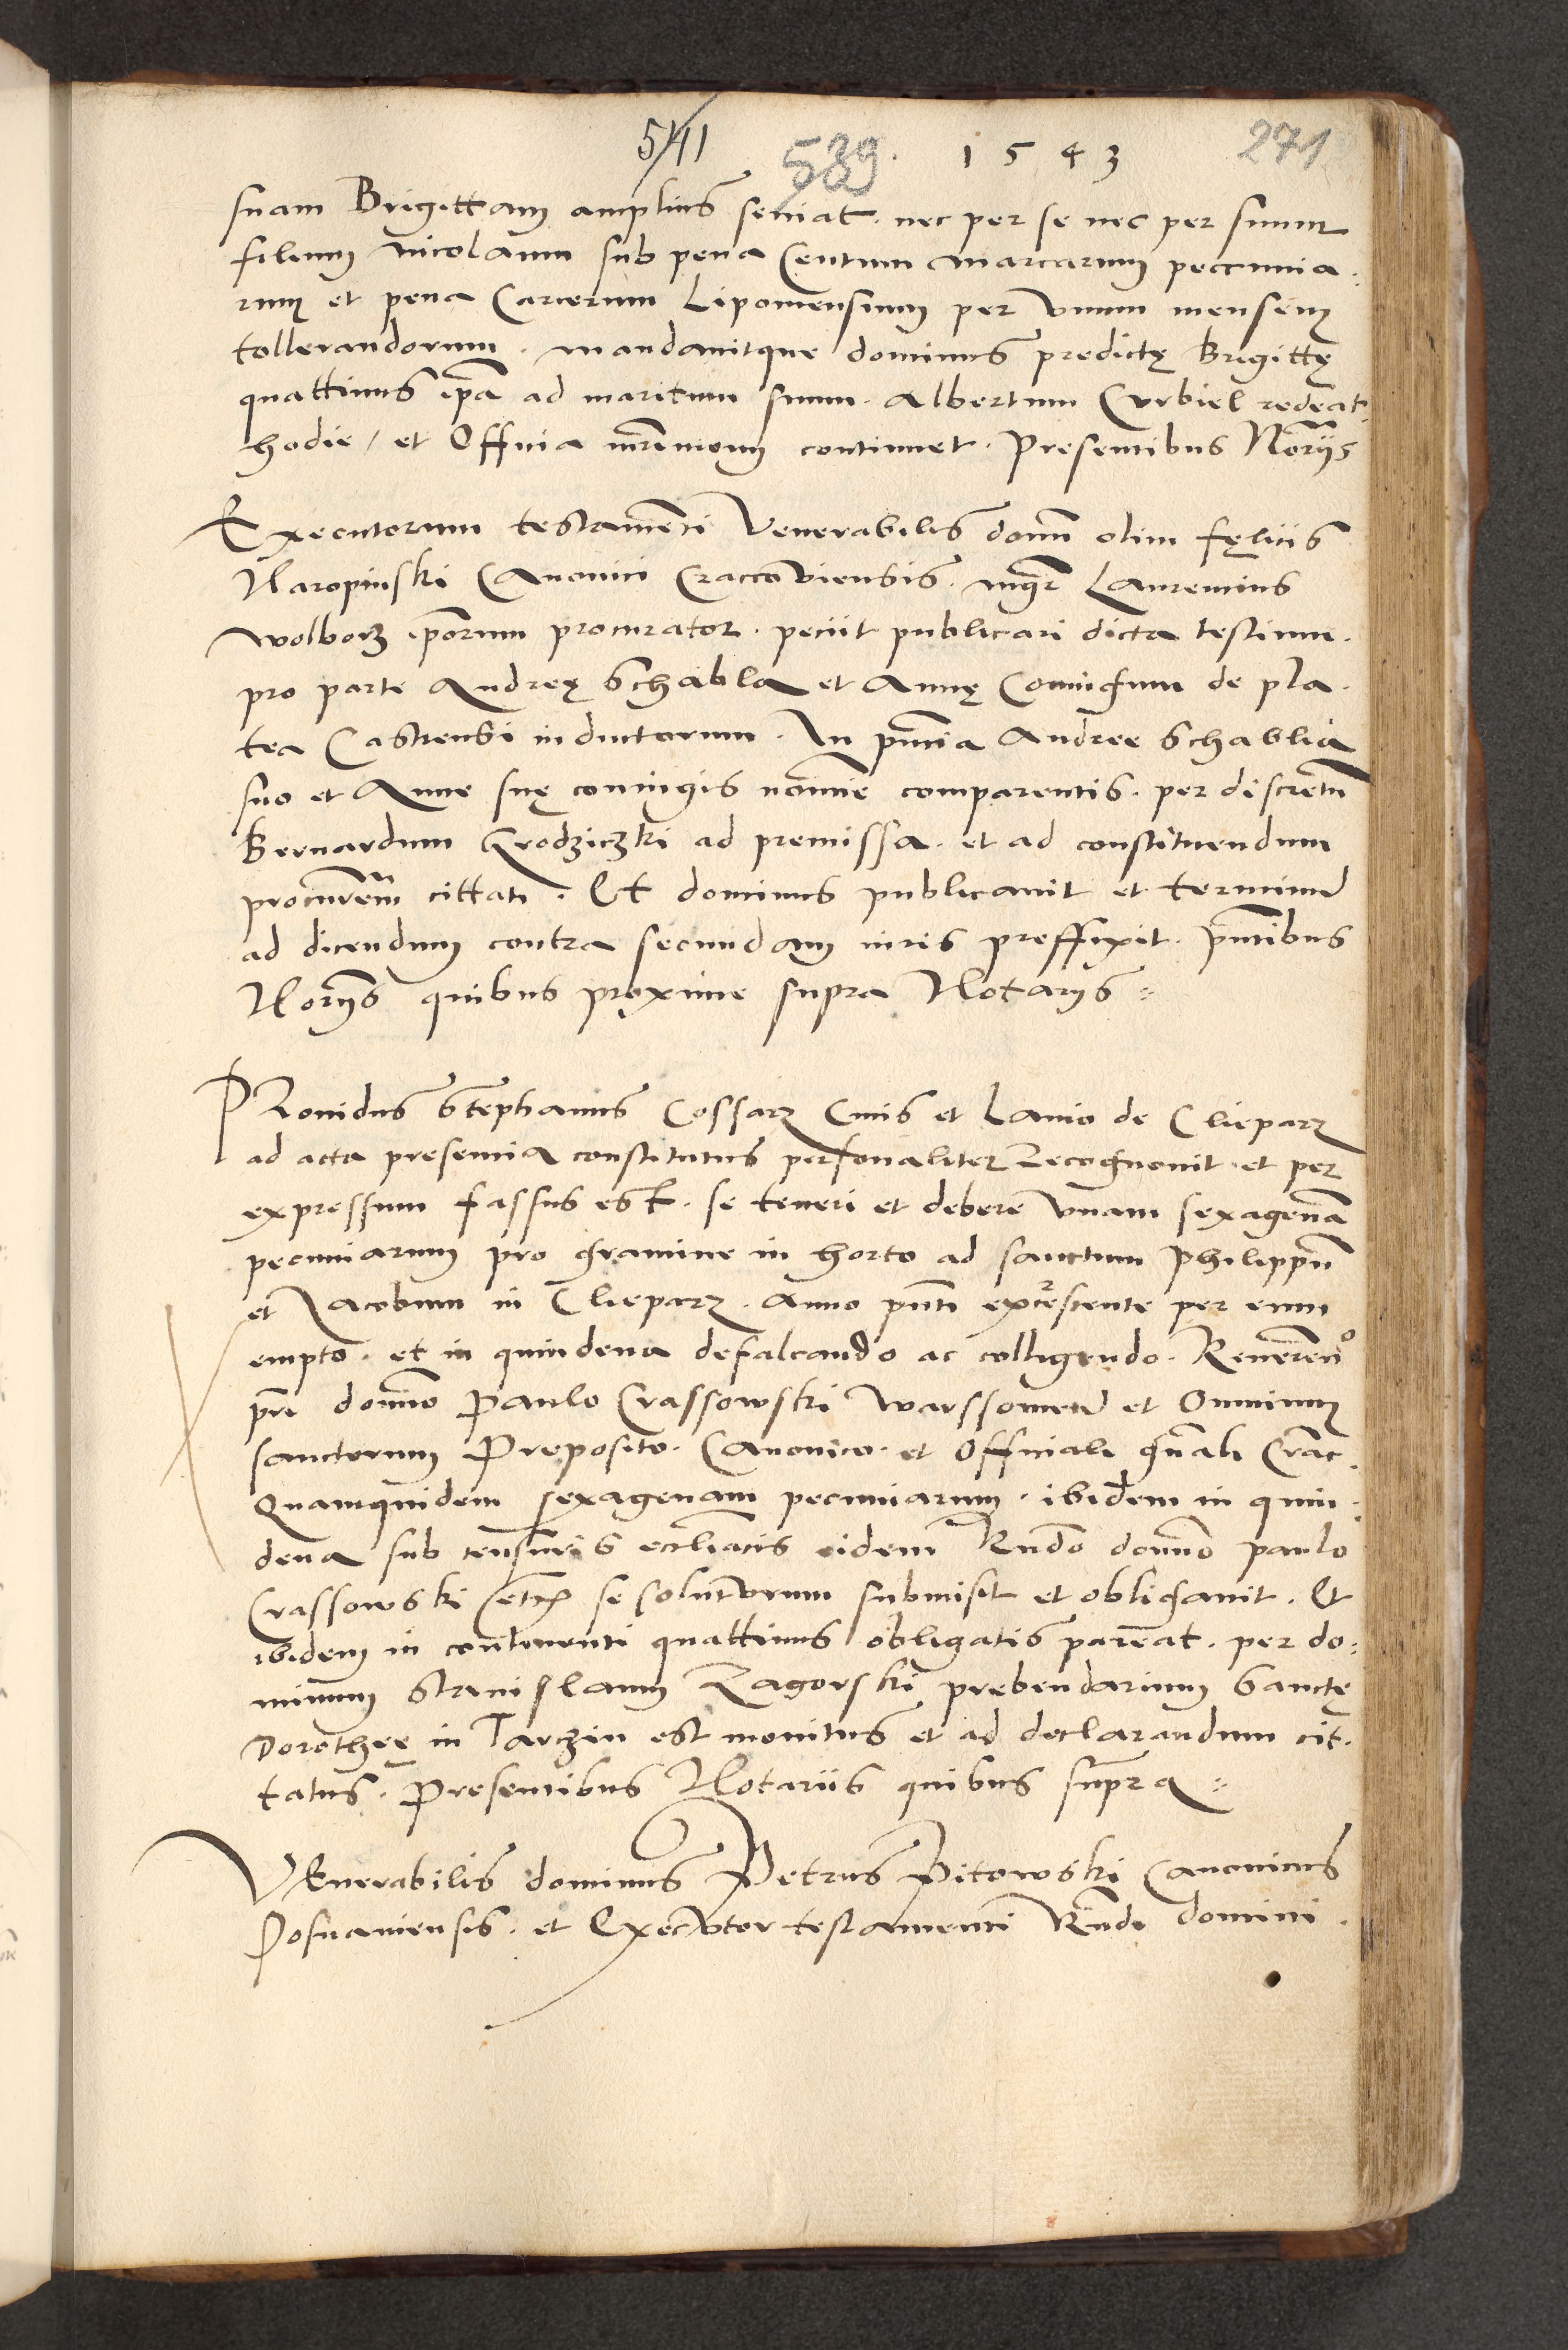 541 539. 1543 271
suam Brigittam amplius seviat. nec per se nec per suum
filium Nicolaum sub pena Centum marcarum peccunia.
rum et pena Carcerum Lipoviensium per unum mensem
tollerandorum. mandavitque dominus predictę Brigittę
quattinus ip̄a ad maritum suum. Albertum Curbiel redeat
hodie / et Officia mr̄imonii continuet. Presentibus Nor̄iis
Executorum testamen̄ti Venerabilis domi͞ olim Fęlicis
Naropinski Canonici Craccoviensis. mgr̄ Laurentius
Wolborz ip̄orum procurator. peciit publicari dicta testium.
pro parte Andreę Schabla et Annę Coniugum de pla.
tea Castrensi inductorum. In pn̄tia Andree Schablia
suo et Anne suę coniugis nomi͞e comparentis. per discretu͞
Bernardum Grodziczki ad premissa. et ad constituendum
procur̄em cittati. Et dominus publicavit et terminu͞
ad dicendum contra secundam iuris preffixit. pn̄tibus
Nor̄iis quibus proxime supra Notariis
PRovidus Stephanus Cossarz Civis et Lanio de Clieparz
ad acta presentia constitutus personaliter Recognovit et per
expressum fassus est. se teneri et debere unam sexagena͞
pecuniarum pro gramine in horto ad sanctum Philippu͞
et Jacobum in Clieparz. Anno pn̄ti excrescente per eum
empto. et in quindena defalcando ac colligendo. Reveren͞o
pr̄i domi͞no Paulo Crassowski Warssovien͞ et Omnium
sanctorum Preposito. Canonico. et Officiali gn̄ali Crac.
Quamquidem sexagenam pecuniarum. ibidem in quin.
dena sub censuris eccl̄iacis eidem Rnd̄o domn̄o paulo
Crassowski etc se soluturum submisit et obligavit. Et
ibidem in continenti quattinus obligatis pareat. per do:
minum Stanislaum Zagorski prebendarium Sanctę
Dorotheę in Tarczin est monitus et ad declarandum cit.
tatus. Presentibus Notariis quibus supra
VEnerabilis dominus Petrus Pitowski Canonicus
Posnaniensis. et Executor testamenti Rnd̄i domini.